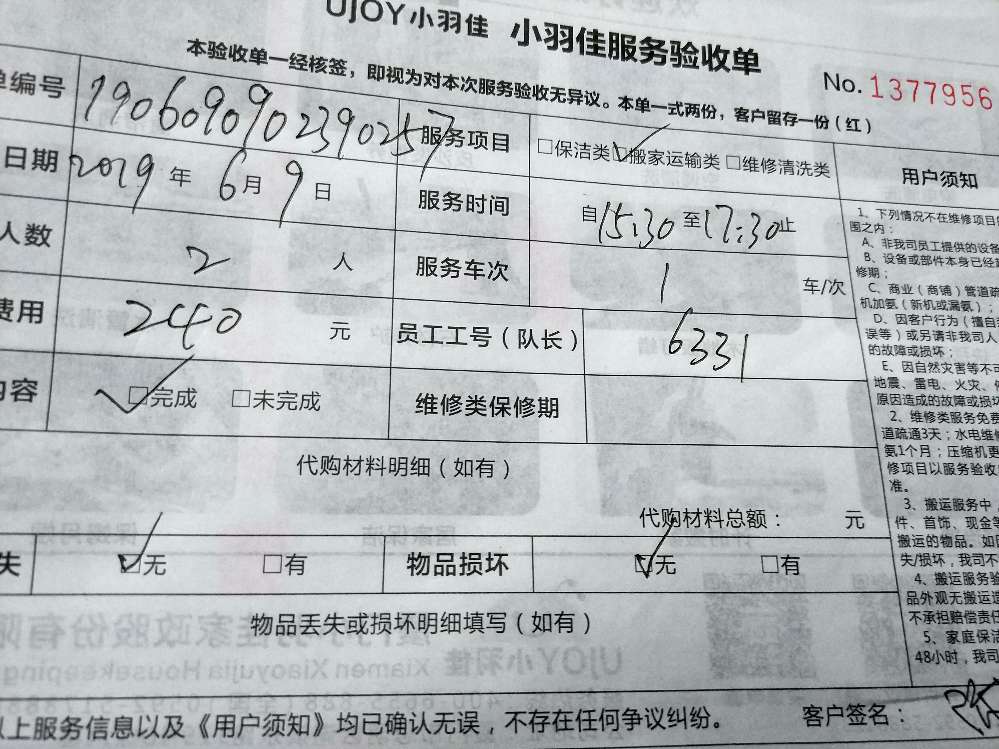 UJOY小羽佳 小羽佳服务验收单
本验收单一经核签，即视为对本次服务验收无异议。本单一式两份，客户留存一份（红）
No. 1377956
单编号 1906090902390257 服务项目 □保洁类 ☑搬家运输类 □维修清洗类
日期 2019年 6月 9日 服务时间 自15:30至17:30止
人数 2 人 服务车次 1 车/次
费用 2440 元 员工工号（队长） 6331
内容 ☑完成 □未完成 维修类保修期
代购材料明细（如有）
代购材料总额： 元
失 ☑无 □有 物品损坏 ☑无 □有
物品丢失或损坏明细填写（如有）
以上服务信息以及《用户须知》均已确认无误，不存在任何争议纠纷。 客户签名：
用户须知
1、下列情况不在维修项目
围之内：
A、非我司员工提供的设备
B、设备或部件本身已经
修期；
C、商业（商铺）管道疏
机加氨（新机或漏氨）；
D、因客户行为（擅自
误等）或另请非我司人
的故障或损坏；
E、因自然灾害等不可
地震、雷电、火灾、
原因造成的故障或损坏
2、维修类服务免费
道疏通3天；水电维修
氨1个月；压缩机更
修项目以服务验收
准。
3、搬运服务中，
件、首饰、现金等
搬运的物品。如
失/损坏，我司不
4、搬运服务验
品外观无搬运造
不承担赔偿责任
5、家庭保洁
48小时，我司